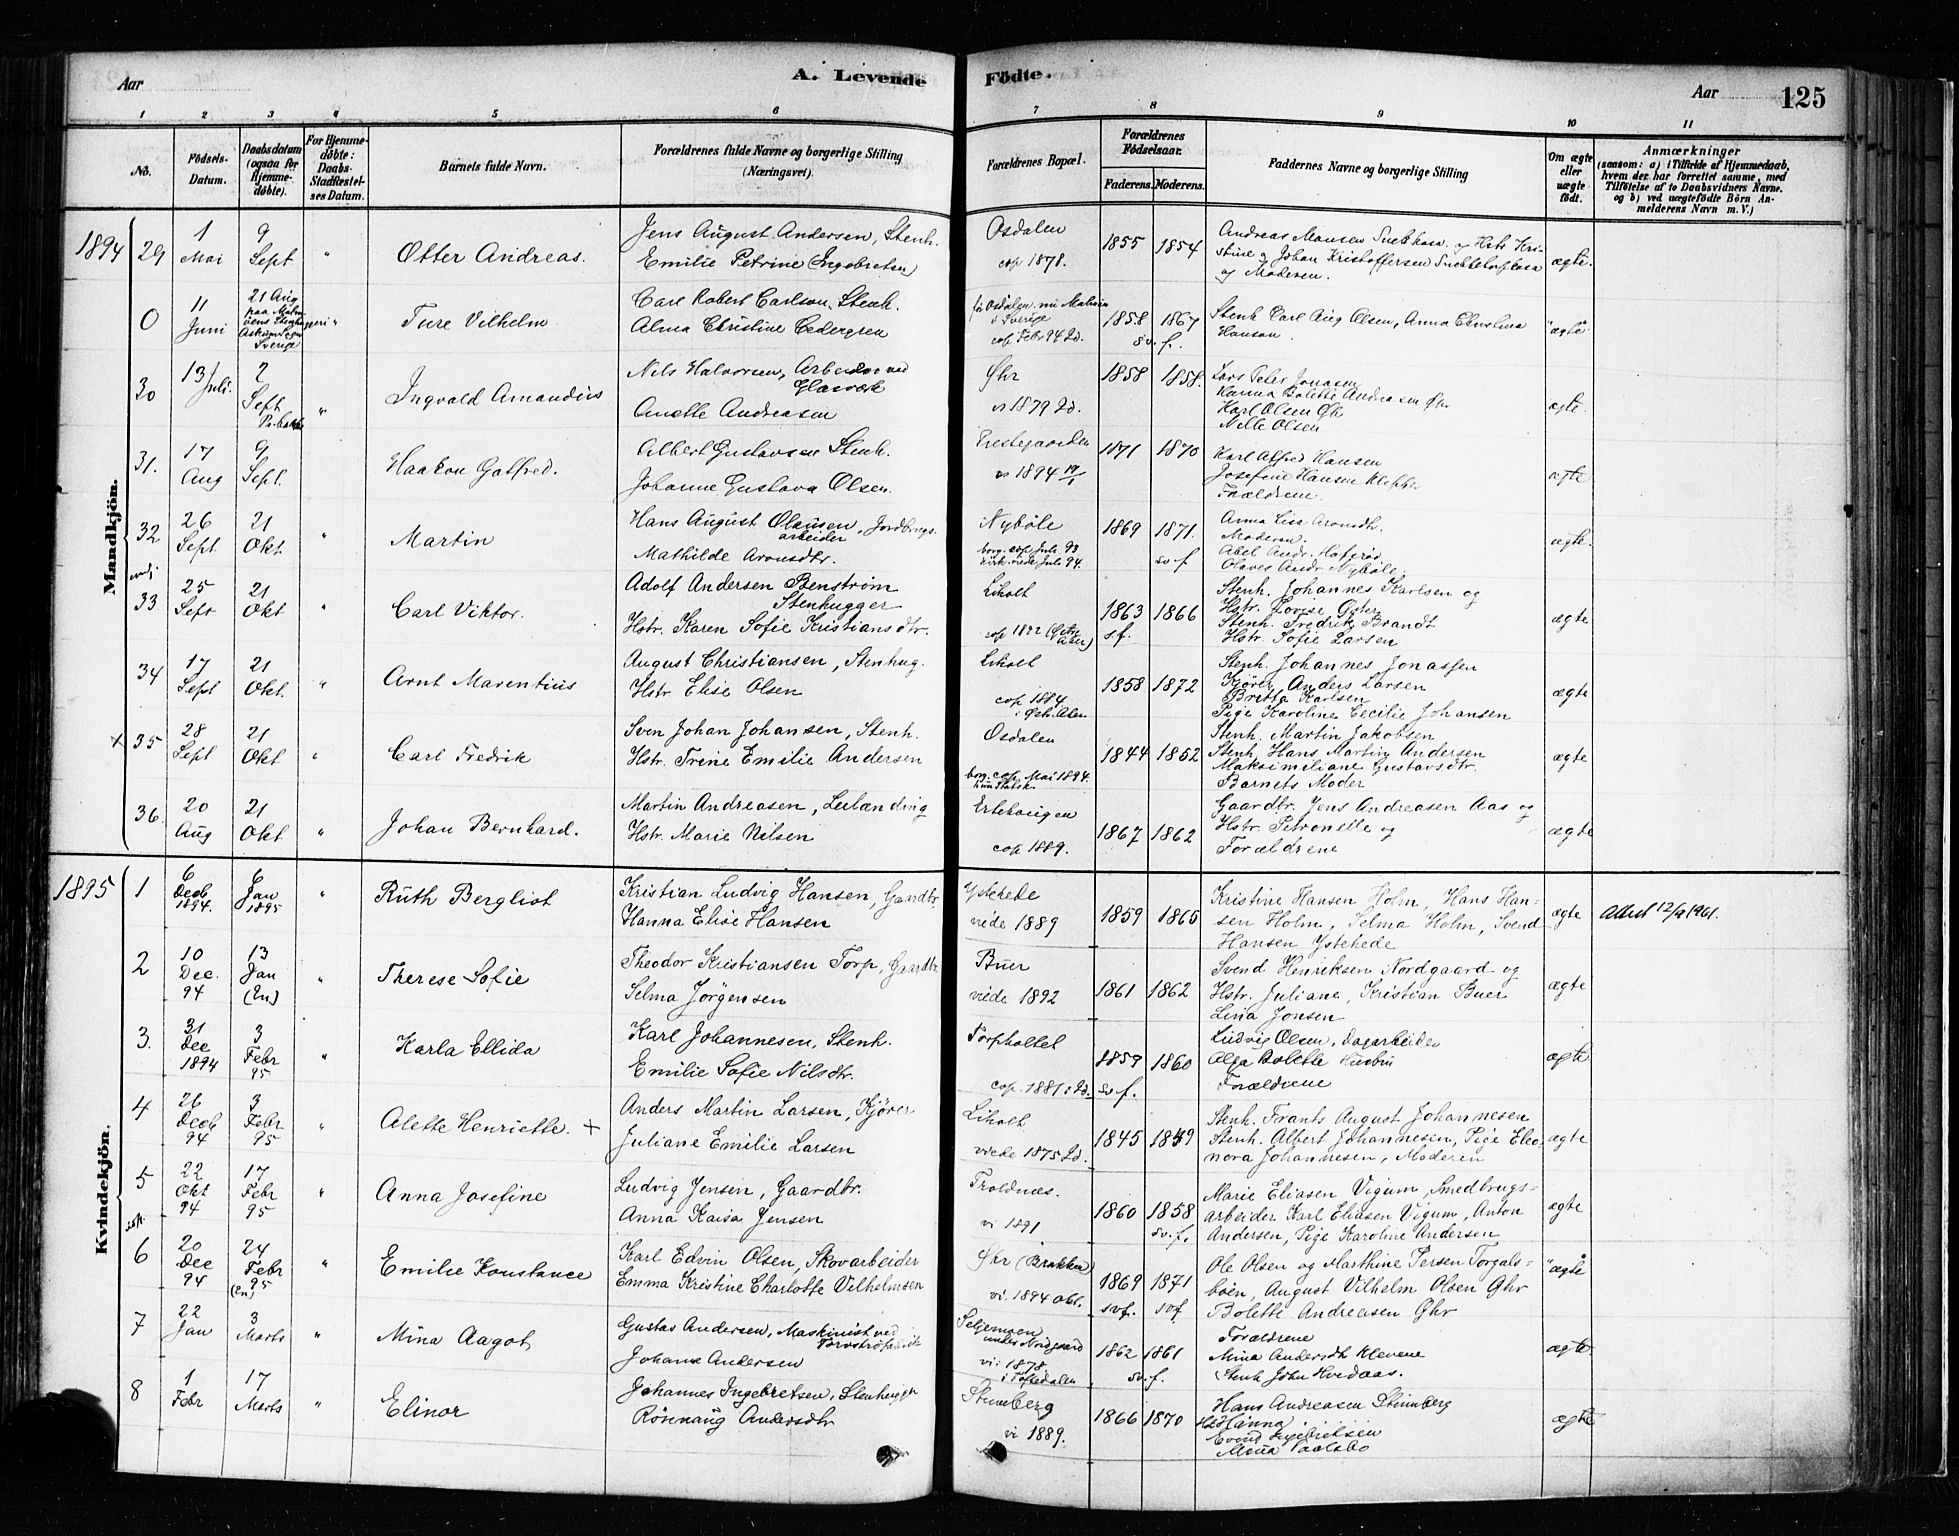 Aar
A. Levende
Födte.
Aar
125
1 2 3 4 5 6 7 8 9 10 11
No.
Födsels-Datum.
Daabsdatum (ogsaa for Hjemme-döbte).
For Hjemme-döbte: Daabs-Stadfæstelses Datum.
Barnets fulde Navn.
Forældrenes fulde Navne og borgerlige Stilling (Næringsvei).
Forældrenes Bopæl.
Forældrenes Födselsaar.
Faderens. Moderens.
Faddernes Navne og borgerlige Stilling
Om ægte eller uægte födt.
Anmærkninger
(saasom: a) i Tilfælde af Hjemmedaab,
hvem der har forrettet samme, med
Tilföielse af to Daabsvidners Navne.
og b) ved uægtefödte Börn An-
melderens Navn m. V.)
Mandkjön.
1894 29 1 Mai 9 Sept " Otter Andreas.
Jens August Andersen, Stenh.
Emilie Petrine (Ingebretsen)
Osdalen
cop 1878.
1855 1854
Andreas Mansen
Stine og Johan Kristoffersen
og Moderen.
ægte.
0 11 Juni 21 Aug Sverige " Ture Vilhelm
Carl Robert Carlson, Stenh.
Alma Christine Cedergren
i Sverige
cop Febr 94 Id.
1858 1867
sv. f.
Stenh Carl Aug Olsen, Anna Christina
Hanson.
"ægte"
30 13 Juli 2 Sept " Ingvald Amandus
Nils Halvorsen, Arbeider ved
Glasværk
Anette Andreasen
Øhr
vi 1879 Id.
1858 1858.
Lars Peter Jonasen
Hanna Bolette Andreasen Øhr
Karl Olsen Øhr
Nille Olsen
ægte.
31. 17 Aug 9 Sept. Haakon Gotfred.
Albert Gustavsen Stenh.
Johanne Gustava Olsen.
Prestegaarden
vi 1894
1871 1870
Karl Alfred Hansen
Josefine Hansen Klepper
Forældrene.
ægte
32 26 Sept 21 Okt " Martin
Hans August Olausen, Jordbrugs-
arbeider
Mathilde Aronsdtr.
Nyböle
borg. cop Juli 93
kirk. viede Juli 94.
1869 1871.
sv f
Anna Lisa Aronsdtr.
Moderen.
Abel Andr. Hafsröd
Olaves Andr Nyböle.
ægte.
33 25 Sept 21 Okt " Carl Viktor.
Adolf Andersen Benström
Stenhugger
Hstr. Karen Sofie Kristiansdtr.
Liholt
1863 1866
sf.
Stenh. Johannes Karlsen og
Hstr. Lovise Öster
Stenh. Fredrik Brandt
Hstr. Sofie Larsen
ægte
34 17 Sept 21 Okt. " Arnt Marentius
August Christiansen, Stenhug.
Hstr Elise Olsen
Liholt
cop 1884
1858 1872
Stenh. Johannes Jonassen
Kjörer Anders Larsen
Britta Karlsen
Pige Karoline Cecilie Johansen
ægte
x 35 28 Sept 21 Okt " Carl Fredrik
Sven Johan Johansen, Stenh.
Hstr. Trine Emilie Andersen
Osdalen
borg. cop. Mai 1894.
1844 1852
Stenh. Martin Jakobsen
Stenh. Hans Martin Andersen
Maksimiliane Gustavsdtr.
Barnets Moder
ægte
36. 20 Aug 21 Okt " Johan Bernhard.
Martin Andreasen, Leilænding
Hstr. Marie Nilsen
Ertehaugen
cop 1889.
1867 1862
Gaardbr. Jens Andreasen Aas og
Hstr. Petronelle og
Forældrene
ægte
Kvindekjön.
1895 1 6 Decb 1894. 6 Jan 1895 " Ruth Bergliot
Kristian Ludvig Hansen, Gaardbr
Hanna Elise Hansen
Ystehede
viede 1889
1859 1865
Kristine Hansen Holm, Hans Han-
sen Holm, Selma Holm, Svend
Hansen Ystehede
ægte
Attest 12/9 1961.
2 10 Dec. 94 13 Jan (En) " Therese Sofie
Theodor Kristiansen Torp, Gaardbr.
Selma Jörgensen
Buer
viede 1892
1861 1862
Svend Henriksen Nordgaard og
Hstr. Juliane, Kristian Buer
Lina Jonsen
ægte
3. 31 Dec 1894 3 Febr 95 " Karla Ellida
Karl Johannesen, Stenh.
Emilie Sofie Nilsdtr.
Torpholtet
cop. 1881 i Id.
1859 1860
sv f.
Ludvig Olsen, Dagarbeider
Olga Bolette
Forældrene
ægte
4 26 Decb 94 3 Febr 95 " Alette Henriette. +
Anders Martin Larsen, Kjörer
Juliane Emilie Larsen
Liholt
viede 1875 Id.
1845 1849
Stenh. Frants August Johannesen
Stenh. Albert Johannesen, Pige Eleo-
nora Johannesen, Moderen
ægte
5 22 Okt 94 17 Febr 95 " Anna Josefine
Ludvig Jensen, Gaardbr.
Anna Kaisa Jensen
Troldnæs.
vi 1891
1860 1858
sv. f.
Marie Eliasen Vigum, Smedbrugs-
arbeider Karl Eliasen Vigum, Anton
Andersen, Pige Karoline Andersen
ægte
6 20 Dec 94 24 Febr 95 (En) " Emilie Konstance
Karl Edvin Olsen, Skovarbeider
Emma Kristine Charlotte Vilhelmsen
Øhr (Brakken)
vi. 1894 okt.
1869 1871
svf. svf
Ole Olsen og Marthine Persen Torgals-
böen, August Vilhelm Olsen Øhr
Bolette Andreasen Øhr
"ægte
7 22 Jan 3 Marts " Mina Aagot
Gustav Andersen, Maskinist ved
Johanne Andersen
under Nordgaard
vi: 1878
i Tistedalen
1862 1861
sv. f.
Forældrene
Mina Andersdtr Klevene
Stenh John Hvidaas.
ægte
8 1 Febr 17 Marts " Elinor
Johannes Ingebretsen, Stenhugger
Rösenaug Andersdtr
Stenberg
vi 1889.
1866 1870
Hans Andreasen Stenberg
Hanna
Mina
ægte